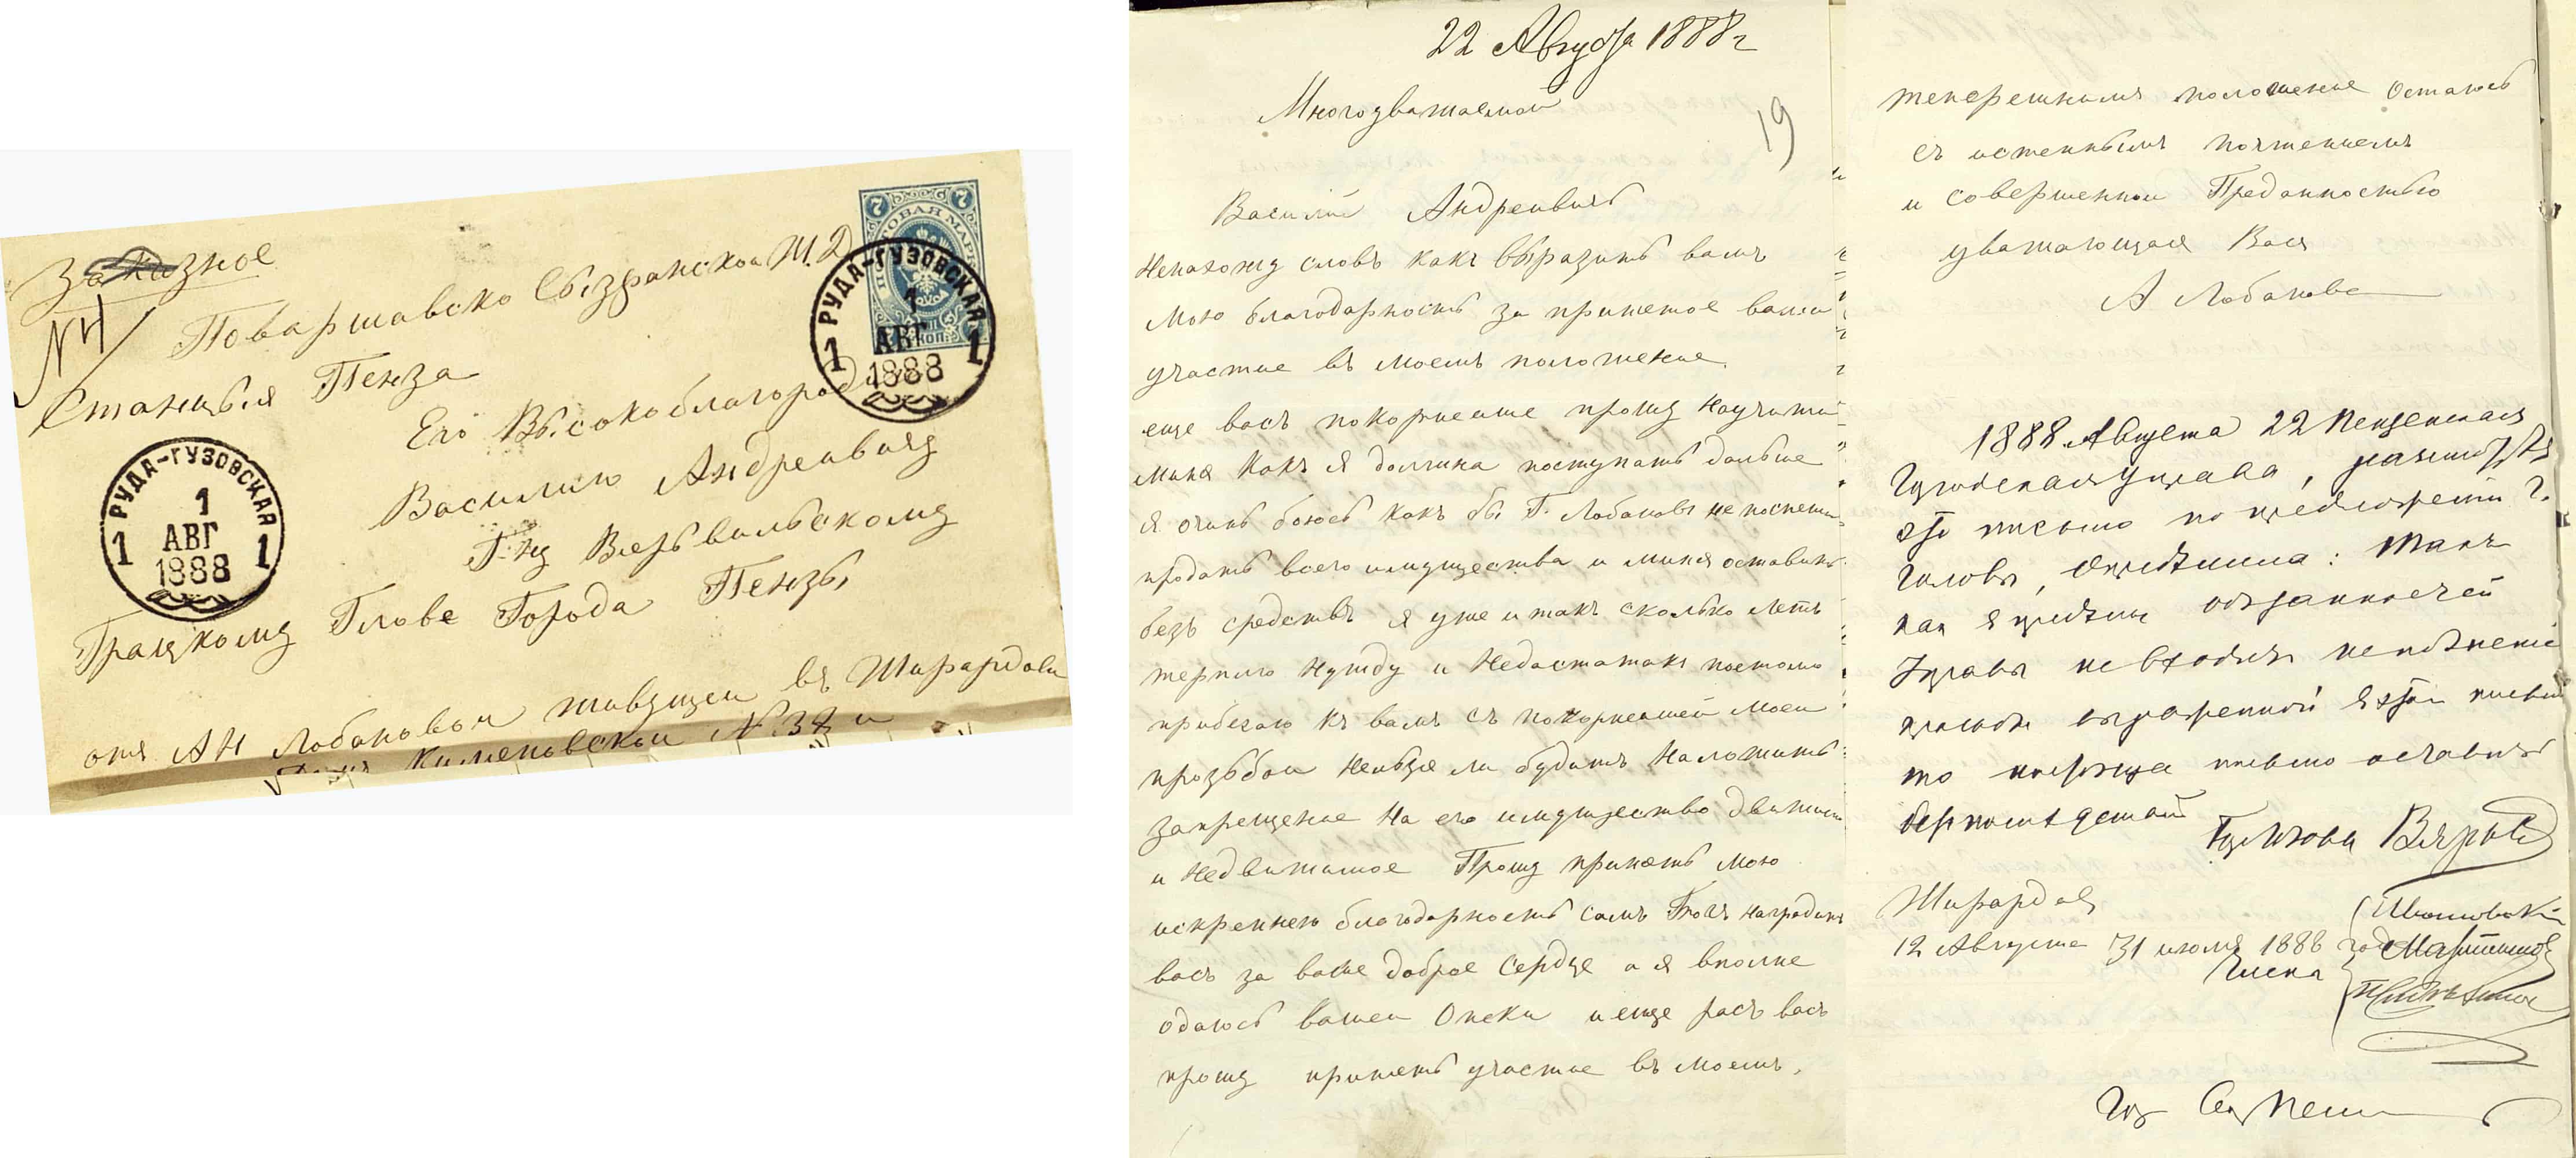 Заказное
N 4
Поваршавско Сызранскои Ж. Д
Станцыя Пенза
Его Высокоблагород
Василию Андреивичу
Г-ну Вярьвильскому
Грацкому Глове Города Пензы
отъ АН Лобановои живущеи въ Жирардови
N 34 и
7
ПОЧТОВАЯ МАРКА
7
КОП.
РУДА-ГУЗОВСКАЯ
1
АВГ
1888
1 1
РУДА-ГУЗОВСКАЯ
1
АВГ
1888
1 1
22 Августа 1888 г
19
Многоуважаемои
Василие Андреивичь
Ненахожу словъ какъ выразить вамъ
мою благодарность за принетое вами
участие въ моемъ положение.
еще васъ покорнеише прошу Научити
миня Какъ я должна поступать дальше
я очинь боюсь какъ бы Г. Лобановъ не поспеши
продать всего имущества и миня оставить
безъ средствъ я уже и такъ сколько леть
терпилю Нужду и Недостатакъ поетому
прибегаю къ вамъ съ покорнеишеи моеи
прозьбои Нельзя ли будить Наложить
запрещение На его имущество движим
и Недвижимое Прошу принять мою
искреннею благодарность самъ Богъ наградить
васъ за ваше доброе Сердце а я вполне
одаюсь вашеи Опеки и еще расъ васъ
прошу принеть участие въ моемъ.
теперешнимъ положение Остаюсь
съ истеннымъ почтениемъ
и совершеннои Преданностью
уважающая Васъ
А Лобанова
1888 Августа 22 Пензенская
Городская Управа,
это письмо по предложению Г.
Головы, определила: такъ
какъ в пределы обязанностей
Управы не входитъ исполнение
просьбы выраженной в этом письме
то письмо оставить
без последствий
Гор. Голова Вярьв
Жирардов
12 Августа 31 июля 1888 год
Члены
Гор. Сек.